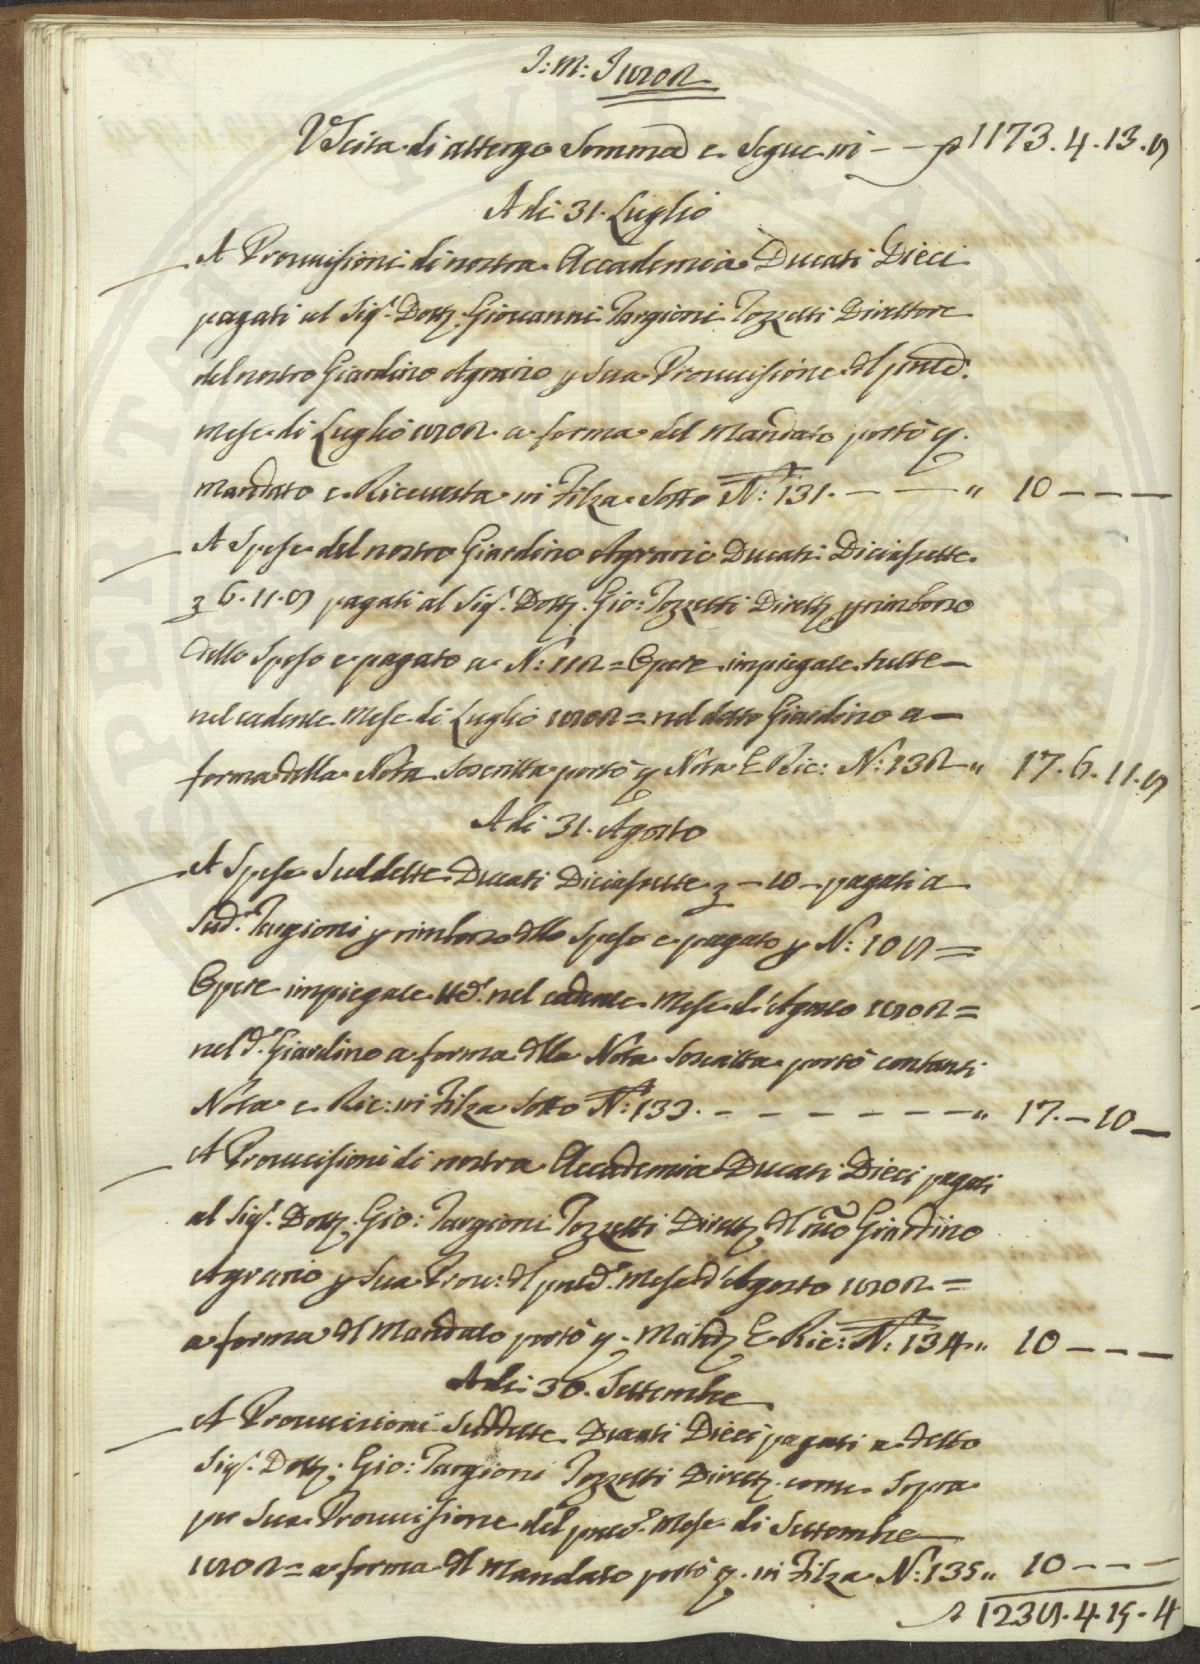 J: M: J 1802
Uscita di attergo Somma e Segue in - - 1173.4.13.8
A di 31. Luglio
A Provvisioni di nostra Accademia Ducati Dieci
pagati al Sig.r Dott. Giovanni Targioni Tozzetti Direttore
del nostro Giardino Agrario p Sua Provvisione dl pred.
mese di Luglio 1802. a forma del Mandato portò q.
mandato e Ricevuta in Filza Sotto N: 131. - - - " 10 - - -
A Spese del nostro Giardino Agrario Ducati Diciassette
6.11.8 pagati al Sig.r Dott. Gio: Tozzetti Dirett. p rimborso
dello Speso e pagato a N: 112 = Opere impiegate tutte
nel cadente Mese di Luglio 1802 = nel detto Giardino a
forma della Nota Soscritta portò q Nota E Ric: N: 132 " 17.6.11.8
A di 31. Agosto
A Spese Suddette Ducati Diciassette - 10 - pagati a
Sud. Targioni p rimborso dllo Speso e pagato p N: 108 =
Opere impiegate nel cadente Mese d'Agosto 1802 =
nel d.o Giardino a forma dlla Nota Soscritta portò contanti
Nota e Ric: in Filza Sotto N: 133. - - - - - - " 17. - 10 -
A Provvisioni di nostra Accademia Ducati Dieci pagati
al Sig.r Dott. Gio: Targioni Tozzetti Dirett. dl nro Giardino
Agrario p Sua Prov: dl pred. Mese d'Agosto 1802 =
a forma dl Mandato portò q. Mand. E Ric: N: 134 " 10 - - -
A di 30. Settembre
A Provvisioni Suddette Ducati Dieci pagati a detto
Sig.r Dott. Gio: Targioni Tozzetti Dirett. come Sopra
per Sua Provvisione del pred. Mese di Settembre
1802 = a forma dl Mandato portò q. in Filza N: 135 " 10 - - -
1238.4.15.4